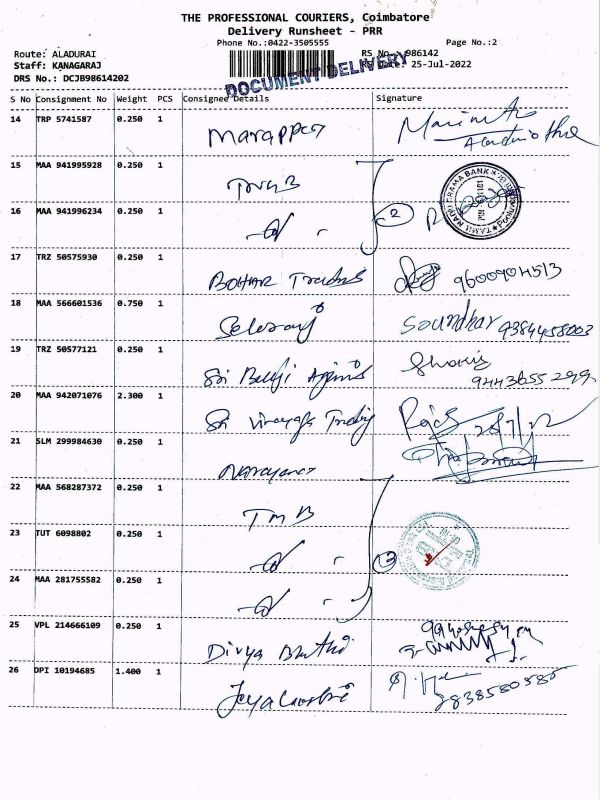 THE PROFESSIONAL COURIERS, Coimbatore
Delivery Runsheet - PRR
Phone No.:0422-3505555
Page No.:2
Route: ALADURAI
RS No. 986142
Staff: KANAGARAJ
Date: 25-Jul-2022
DRS No.: DCJB98614202
DOCUMENT DELIVERY
S No Consignment No Weight PCS Consignee Details Signature
14 TRP 5741587 0.250 1 Marappan
15 MAA 941995928 0.250 1 TNGB
16 MAA 941996234 0.250 1 2
TAMIL NADU GRAMA BANK
17 TRZ 50575930 0.250 1 9600904513
18 MAA 566601536 0.750 1 Selvaraj Soundhar 9384458003
19 TRZ 50577121 0.250 1 Sri 9443655299
20 MAA 942071076 2.300 1 Sri Vinayaga Trading 25/7/22
21 SLM 299984630 0.250 1 Narayanan
22 MAA 568287372 0.250 1 TMB
23 TUT 6098802 0.250 1 3
24 MAA 281755582 0.250 1
25 VPL 214666109 0.250 1 Divya
26 DPI 10194685 1.400 1 9838580585